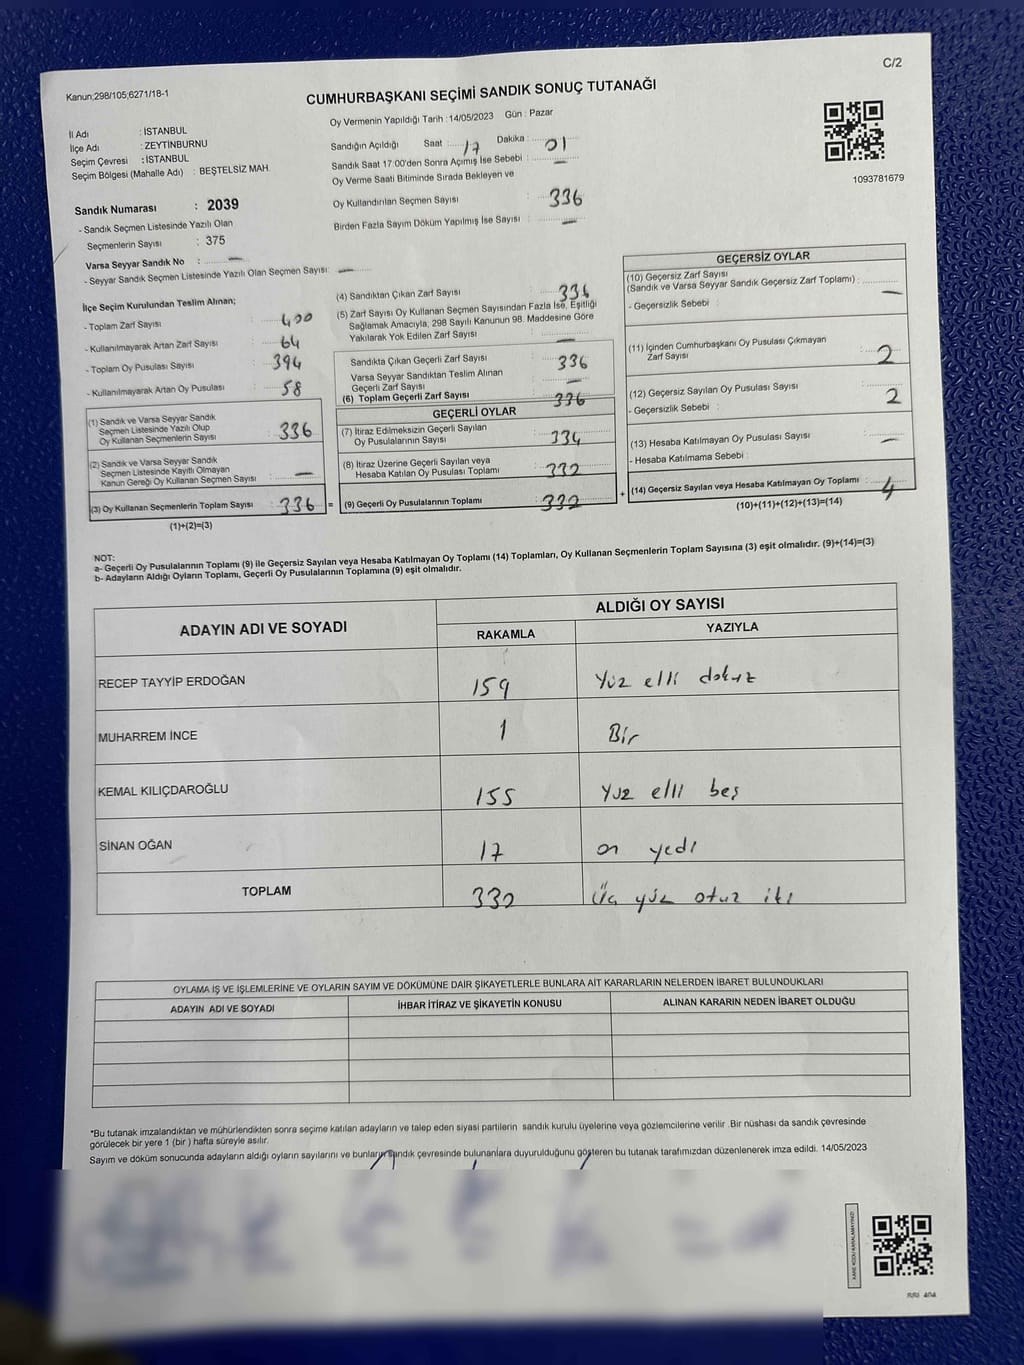 C/2
Kanun;298/105;6271/18-1
CUMHURBAŞKANI SEÇİMİ SANDIK SONUÇ TUTANAĞI
Oy Vermenin Yapıldığı Tarih :14/05/2023 Gün : Pazar
İl Adı : İSTANBUL
İlçe Adı : ZEYTİNBURNU
Seçim Çevresi : İSTANBUL
Seçim Bölgesi (Mahalle Adı) : BEŞTELSİZ MAH.
Sandığın Açıldığı Saat : 17 Dakika : 01
Sandık Saat 17:00'den Sonra Açımış İse Sebebi : —
Oy Verme Saati Bitiminde Sırada Bekleyen ve
Oy Kullandırılan Seçmen Sayısı : 336
Birden Fazla Sayım Döküm Yapılmış İse Sayısı : —
1093781679
Sandık Numarası : 2039
- Sandık Seçmen Listesinde Yazılı Olan
Seçmenlerin Sayısı : 375
Varsa Seyyar Sandık No : —
- Seyyar Sandık Seçmen Listesinde Yazılı Olan Seçmen Sayısı: —
İlçe Seçim Kurulundan Teslim Alınan;
- Toplam Zarf Sayısı : 400
- Kullanılmayarak Artan Zarf Sayısı : 64
- Toplam Oy Pusulası Sayısı : 394
- Kullanılmayarak Artan Oy Pusulası : 58
(1) Sandık ve Varsa Seyyar Sandık
Seçmen Listesinde Yazılı Olup
Oy Kullanan Seçmenlerin Sayısı : 336
(2) Sandık ve Varsa Seyyar Sandık
Seçmen Listesinde Kayıtlı Olmayan
Kanun Gereği Oy Kullanan Seçmen Sayısı : —
(3) Oy Kullanan Seçmenlerin Toplam Sayısı : 336 =
(1)+(2)=(3)
(4) Sandıktan Çıkan Zarf Sayısı : 336
(5) Zarf Sayısı Oy Kullanan Seçmen Sayısından Fazla İse, Eşitliği
Sağlamak Amacıyla, 298 Sayılı Kanunun 98. Maddesine Göre
Yakılarak Yok Edilen Zarf Sayısı : —
Sandıkta Çıkan Geçerli Zarf Sayısı : 336
Varsa Seyyar Sandıktan Teslim Alınan
Geçerli Zarf Sayısı : —
(6) Toplam Geçerli Zarf Sayısı : 336
GEÇERLİ OYLAR
(7) İtiraz Edilmeksizin Geçerli Sayılan
Oy Pusulalarının Sayısı : 334
(8) İtiraz Üzerine Geçerli Sayılan veya
Hesaba Katılan Oy Pusulası Toplamı : 332
(9) Geçerli Oy Pusulalarının Toplamı : 332 +
GEÇERSİZ OYLAR
(10) Geçersiz Zarf Sayısı
(Sandık ve Varsa Seyyar Sandık Geçersiz Zarf Toplamı) : —
- Geçersizlik Sebebi :
(11) İçinden Cumhurbaşkanı Oy Pusulası Çıkmayan
Zarf Sayısı : 2
(12) Geçersiz Sayılan Oy Pusulası Sayısı : 2
- Geçersizlik Sebebi :
(13) Hesaba Katılmayan Oy Pusulası Sayısı : —
- Hesaba Katılmama Sebebi :
(14) Geçersiz Sayılan veya Hesaba Katılmayan Oy Toplamı : 4
(10)+(11)+(12)+(13)=(14)
NOT:
a- Geçerli Oy Pusulalarının Toplamı (9) ile Geçersiz Sayılan veya Hesaba Katılmayan Oy Toplamı (14) Toplamları, Oy Kullanan Seçmenlerin Toplam Sayısına (3) eşit olmalıdır. (9)+(14)=(3)
b- Adayların Aldığı Oyların Toplamı, Geçerli Oy Pusulalarının Toplamına (9) eşit olmalıdır.
ADAYIN ADI VE SOYADI ALDIĞI OY SAYISI
RAKAMLA YAZIYLA
RECEP TAYYİP ERDOĞAN 159 Yüz elli dokuz
MUHARREM İNCE 1 Bir
KEMAL KILIÇDAROĞLU 155 Yuz elli beş
SİNAN OĞAN 17 on yedi
TOPLAM 332 Üç yüz otuz iki
OYLAMA İŞ VE İŞLEMLERİNE VE OYLARIN SAYIM VE DÖKÜMÜNE DAİR ŞİKAYETLERLE BUNLARA AİT KARARLARIN NELERDEN İBARET BULUNDUKLARI
ADAYIN ADI VE SOYADI İHBAR İTİRAZ VE ŞİKAYETİN KONUSU ALINAN KARARIN NEDEN İBARET OLDUĞU
*Bu tutanak imzalandıktan ve mühürlendikten sonra seçime katılan adayların ve talep eden siyasi partilerin sandık kurulu üyelerine veya gözlemcilerine verilir .Bir nüshası da sandık çevresinde
görülecek bir yere 1 (bir ) hafta süreyle asılır.
Sayım ve döküm sonucunda adayların aldığı oyların sayılarını ve bunların sandık çevresinde bulunanlara duyurulduğunu gösteren bu tutanak tarafımızdan düzenlenerek imza edildi. 14/05/2023